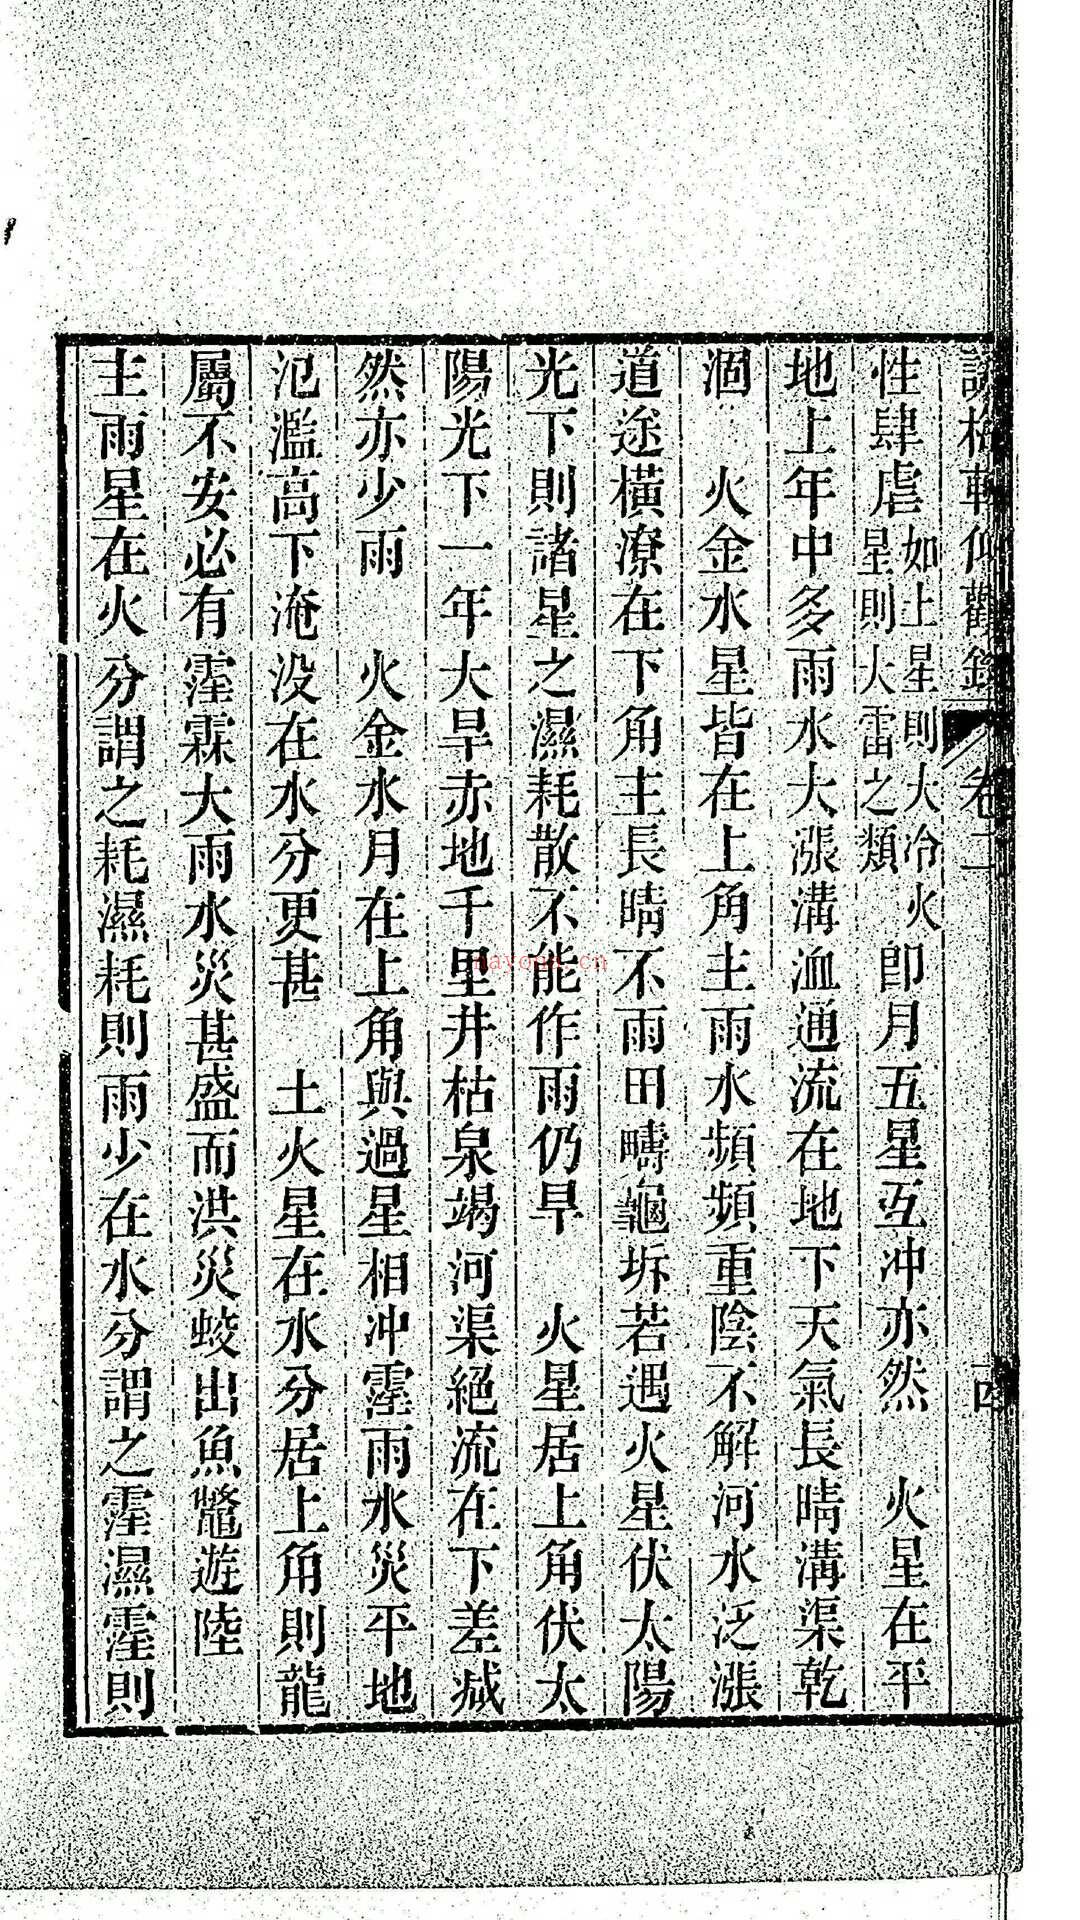 讀梅軒仰觀錄 卷二 四
性肆虐如土星則大冷火星則大雷之類 卽月五星互冲亦然 火星在平
地上年中多雨水大漲溝洫通流在地下天氣長晴溝渠乾
涸 火金水星皆在上角主雨水頻頻重陰不解河水泛漲
道途橫潦在下角主長晴不雨田疇龜坼若遇火星伏太陽
光下則諸星之濕耗散不能作雨仍旱 火星居上角伏太
陽光下一年大旱赤地千里井枯泉竭河渠絕流在下差減
然亦少雨 火金水月在上角與過星相冲霪雨水災平地
氾濫高下淹没在水分更甚 土火星在水分居上角則龍
屬不安必有霪霖大雨水災甚盛而洪災蛟出魚鼈遊陸
主雨星在火分謂之耗濕耗則雨少在水分謂之霪濕霪則
nayona.cn